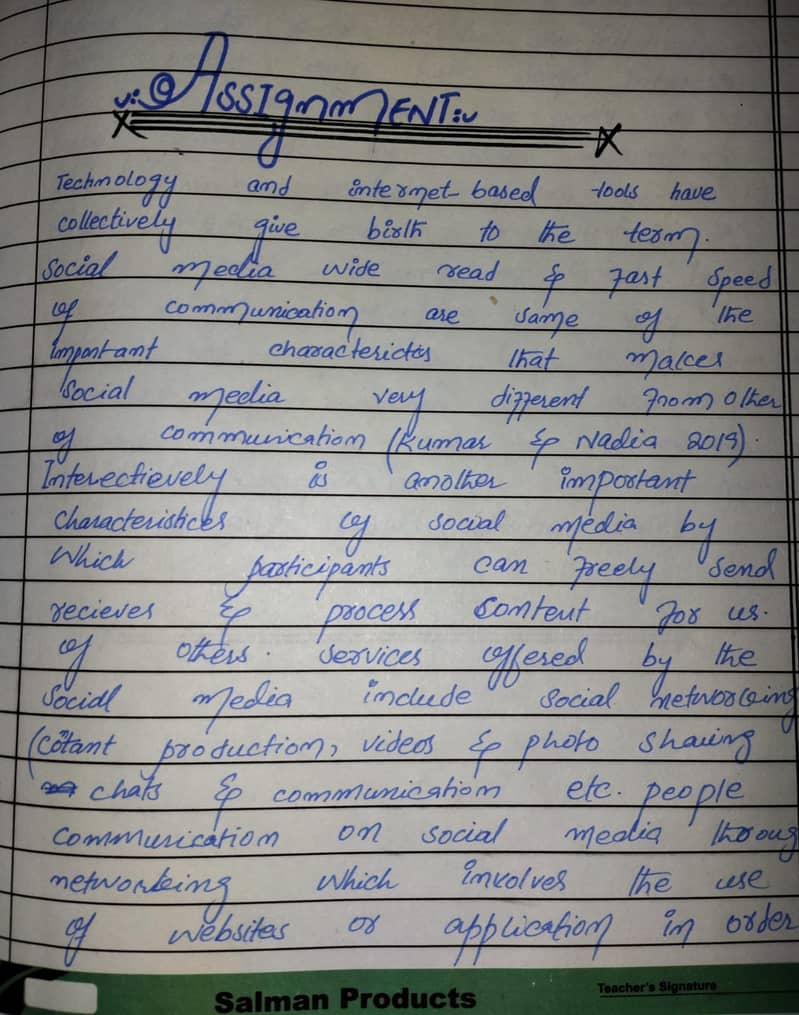 ASSIgnmENT
Technology and internet based tools have
collectively give birth to the term.
Social media wide read & fast speed
of communication are same of the
important characterictcs that makes
social media very different from other
of communication (Kumar & Nadia 2019).
Interectievely is another important
characteristices of social media by
Which participants can freely send
recieves & process content for us.
of others. services offered by the
social media include social networking
(cotant production, videos & photo sharing
chats & communication etc. people
communication on social media throug
networking which involves the use
of websites or application in order
Salman Products
Teacher's Signature